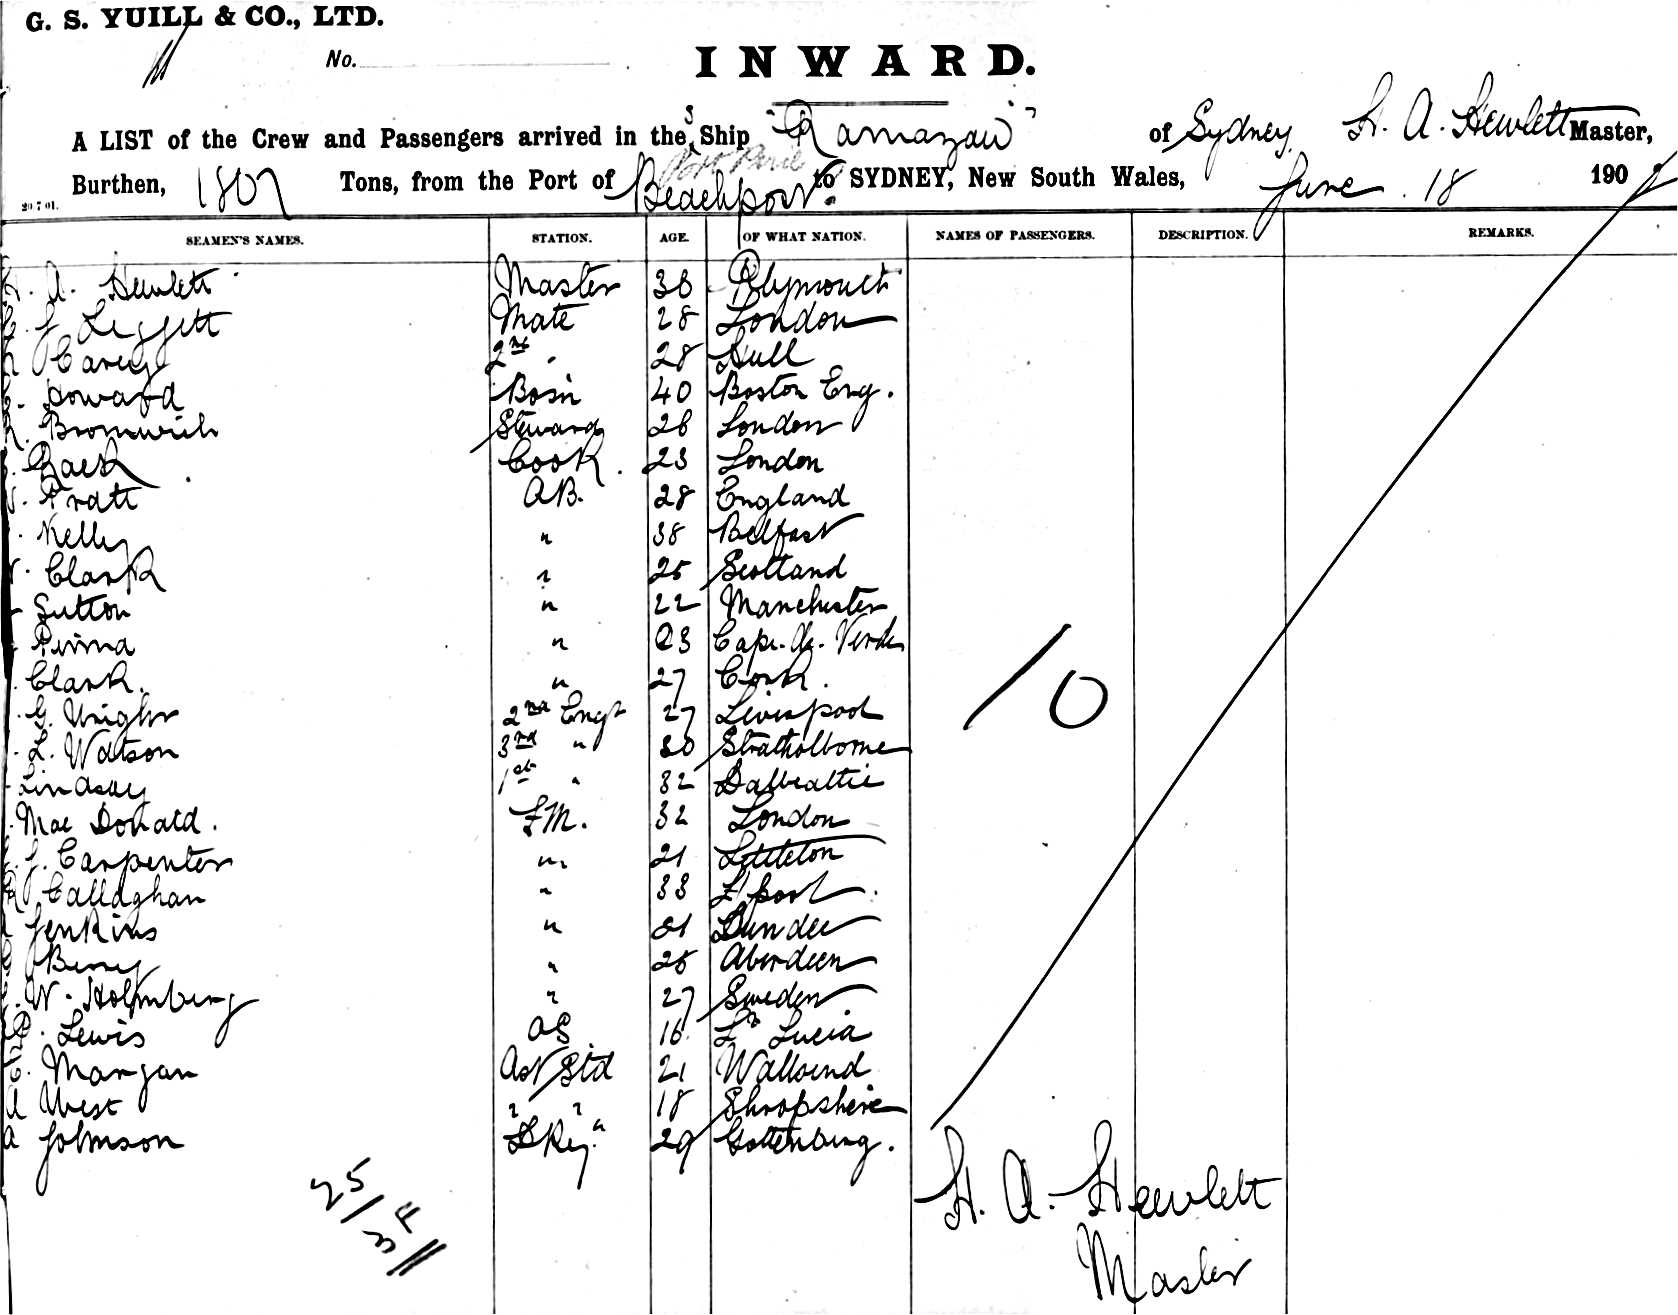 G. S. YUILL & CO., LTD.
No.
INWARD.
A LIST of the Crew and Passengers arrived in the S Ship "Ramazan" of Sydney, H. A. Hewlett Master,
Port Pirie
Burthen, 1807 Tons, from the Port of Beachport to SYDNEY, New South Wales, June 18 190
20 7 01.
SEAMEN'S NAMES. STATION. AGE. OF WHAT NATION. NAMES OF PASSENGERS. DESCRIPTION. REMARKS.
H. A. Hewlett Master 38 Plymouth
J Leggett Mate 28 London
Carey 2nd " 28 Hull
Howard Bosn 40 Boston Eng.
Bromwich Steward 26 London
Back Cook 23 London
Pratt AB. 28 England
Kelly " 38 Belfast
Clark " 25 Scotland
Sutton " 22 Manchester
Pinna " 23 Cape. de. Verde
Clark. " 27 Cork.
G. Wright 2nd Engr 27 Liverpool
L. Watson 3rd " 30
Lindsay 1st " 32 Dalbeattie
Mac Donald. FM. 32 London
J. Carpenter " 21 Littleton
R Callaghan " 33 L'pool
Jenkins " 31 Dundee
Berry " 25 Aberdeen
W. Holmberg " 27 Sweden
Lewis OS 16 St Lucia
C. Morgan Ast Std 21 Wallsend
A West " " 18 Shropshire
A Johnson DKey" 29 Gottenburg.
10
25
H. A. Hewlett
Master